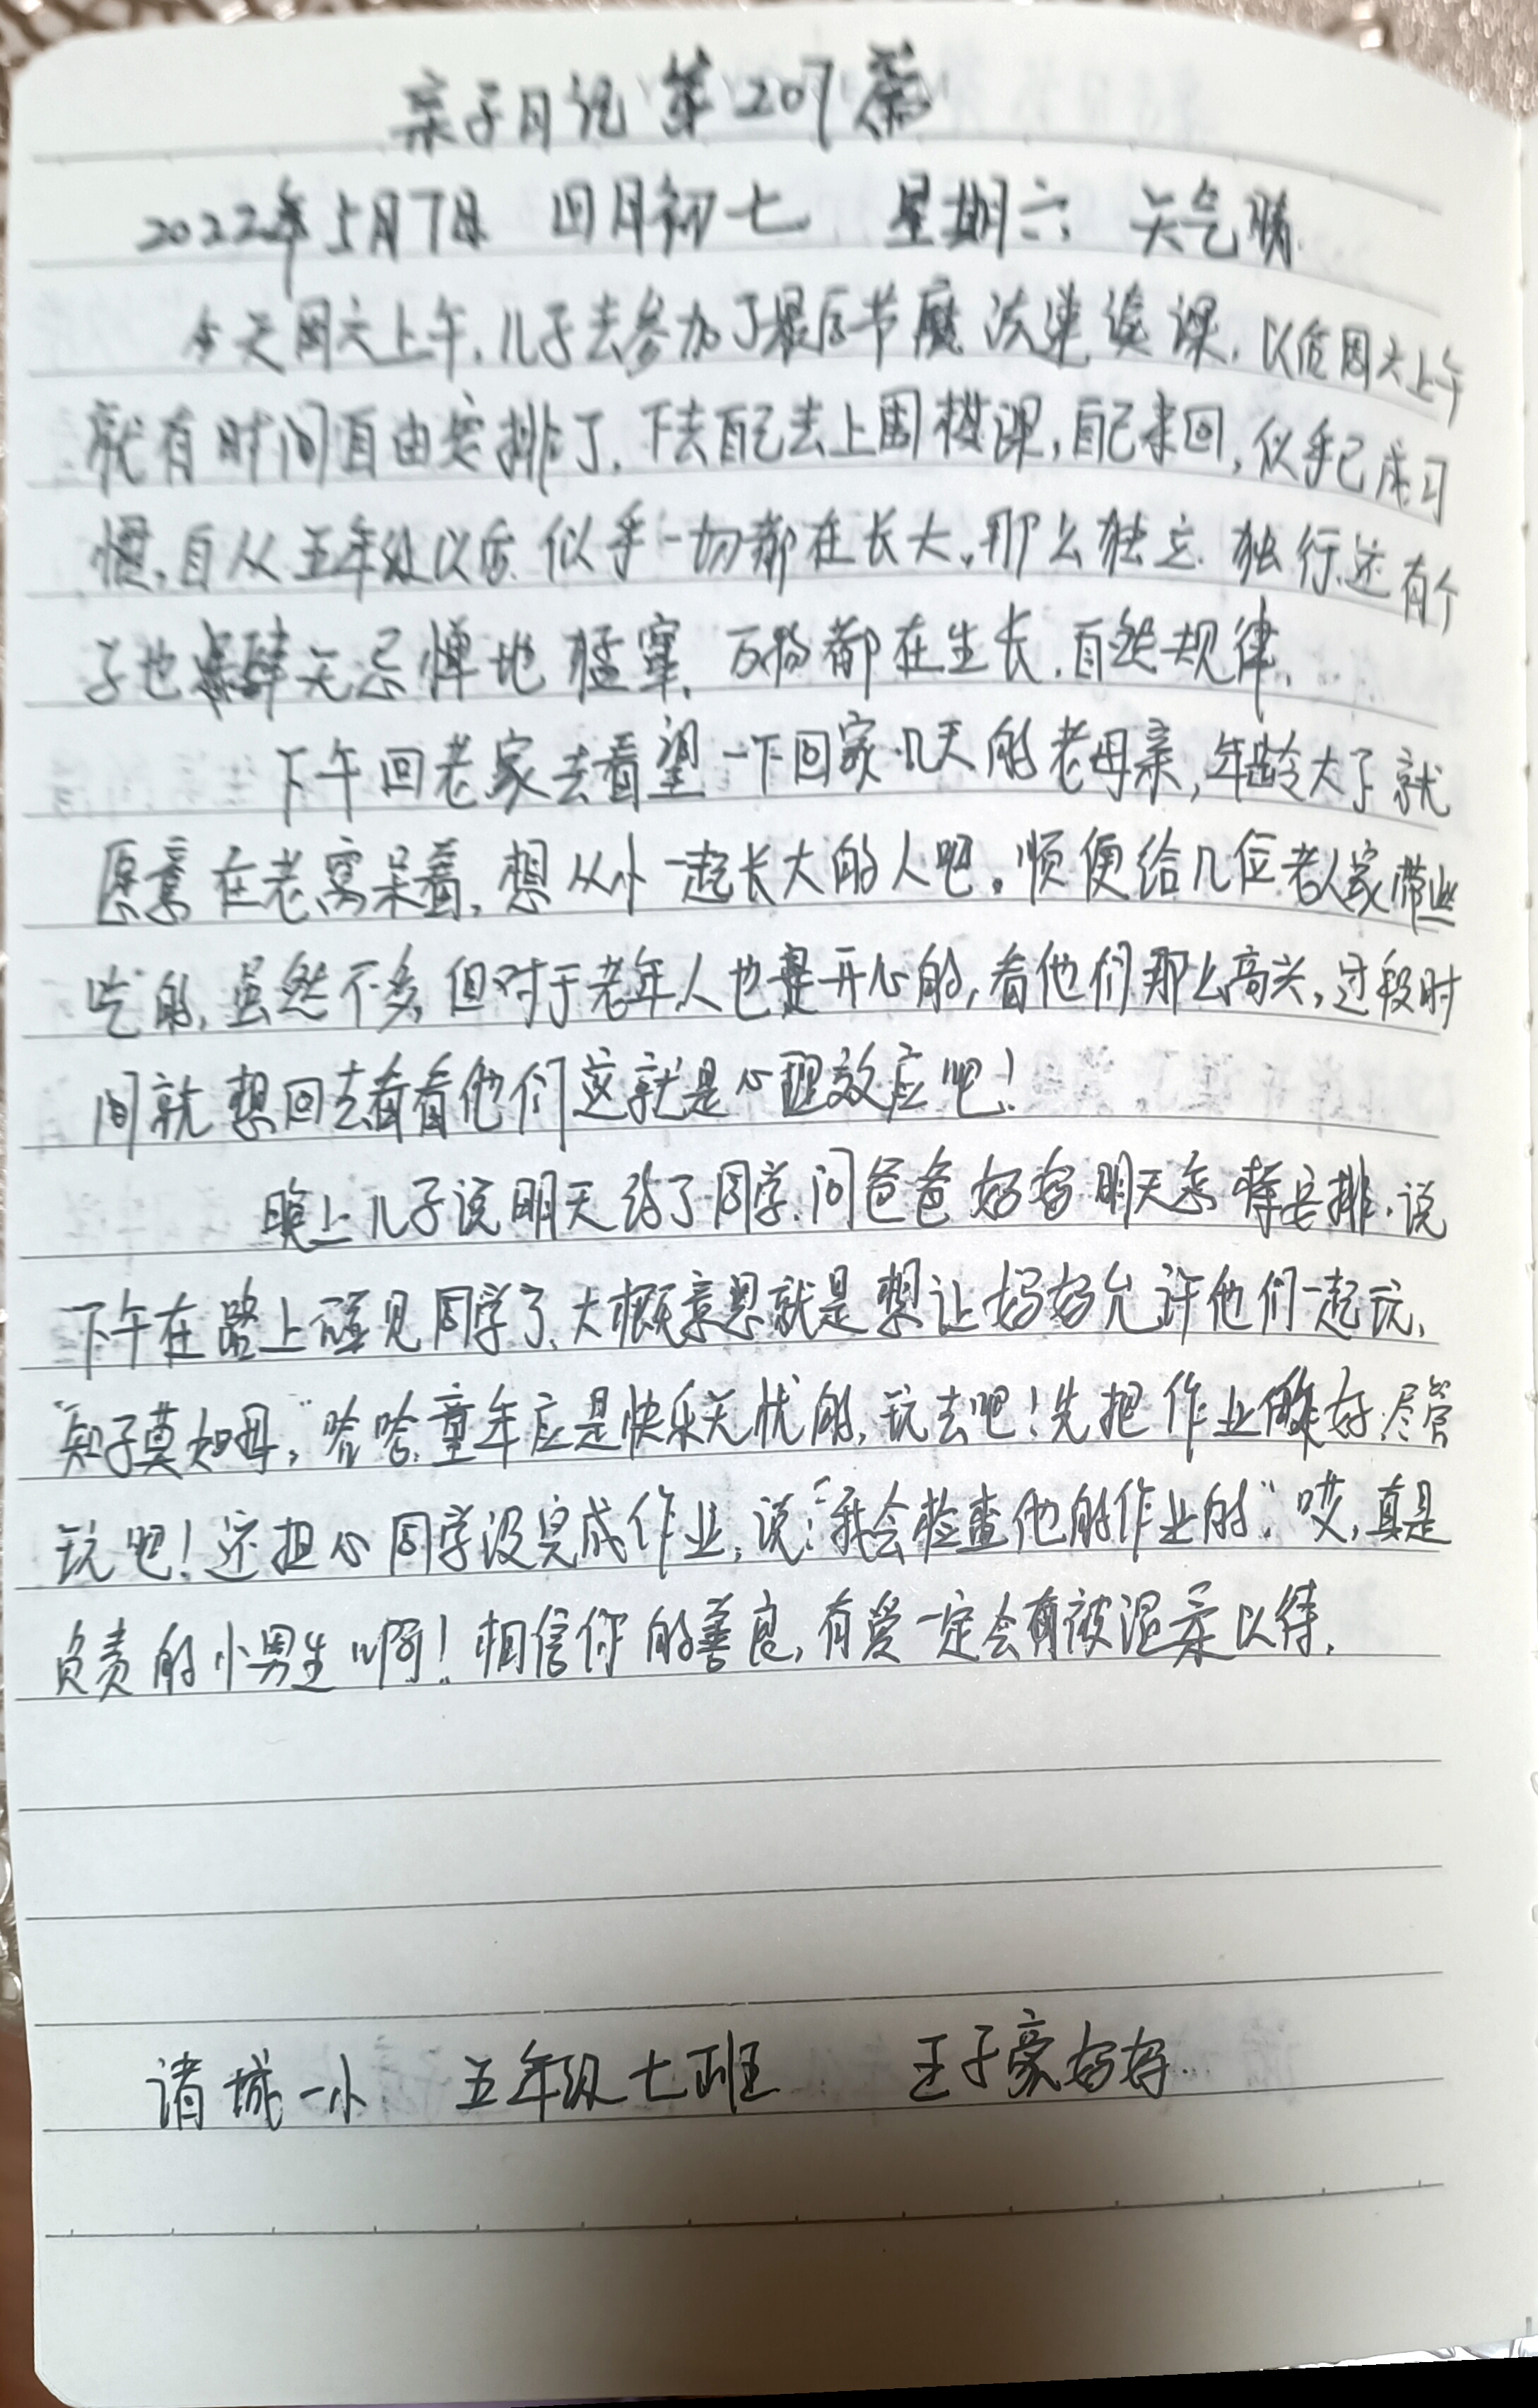 亲子日记第207篇
2022年5月7日 四月初七 星期六 天气晴
今天周六上午,儿子去参加了最后节魔法速读课,以后周六上午
就有时间自由安排了,下去自己去上围棋课,自己来回,似乎已成习
惯,自从五年级以后似乎一切都在长大。那么独立.独行,还有个
子也肆无忌惮地猛窜,万物都在生长,自然规律,
下午回老家去看望一下回家几天的老母亲,年龄大了就
愿意在老窝呆着,想从小一起长大的人吧。顺便给几位老人家带些
吃的,虽然不多,但对于老年人也是开心的,看他们那么高兴,过段时
间就想回去看看他们这就是心理效应吧!
晚上儿子说明天约了同学,问爸爸妈妈明天怎样安排.说
下午在路上碰见同学了,大概意思就是想让妈妈允许他们一起玩,
"知子莫如母,"哈哈,童年应是快乐无忧的,玩去吧!先把作业做好.尽管
玩吧!还担心同学没完成作业,说:"我会检查他的作业的."哎,真是
负责的小男生啊!相信你的善良,有爱一定会有被温柔以待.
诸城一小 五年级七班 王子豪妈妈